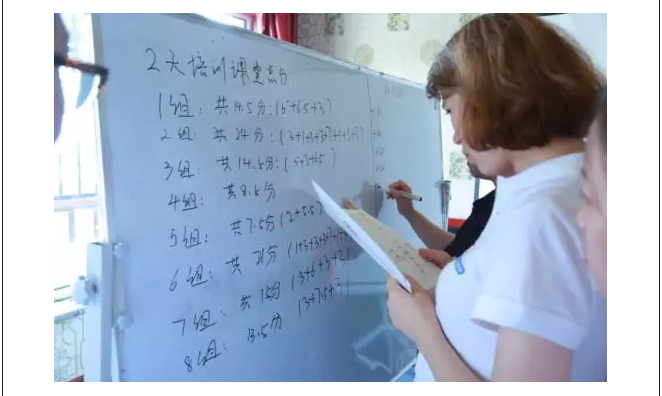 2天培训课堂总分
1组: 共14.5分: (5+6.5+3)
2组: 共24分: (3+1+3+3+
3组: 共14.5分: (5+3+6.5)
4组: 共8.5分
5组: 共7.5分 (2+5.5)
6组: 共21分 (1+3+3+3+
7组: 共15分 (3+6+3+2)
8组: 13.5分 (3+7.5+3)